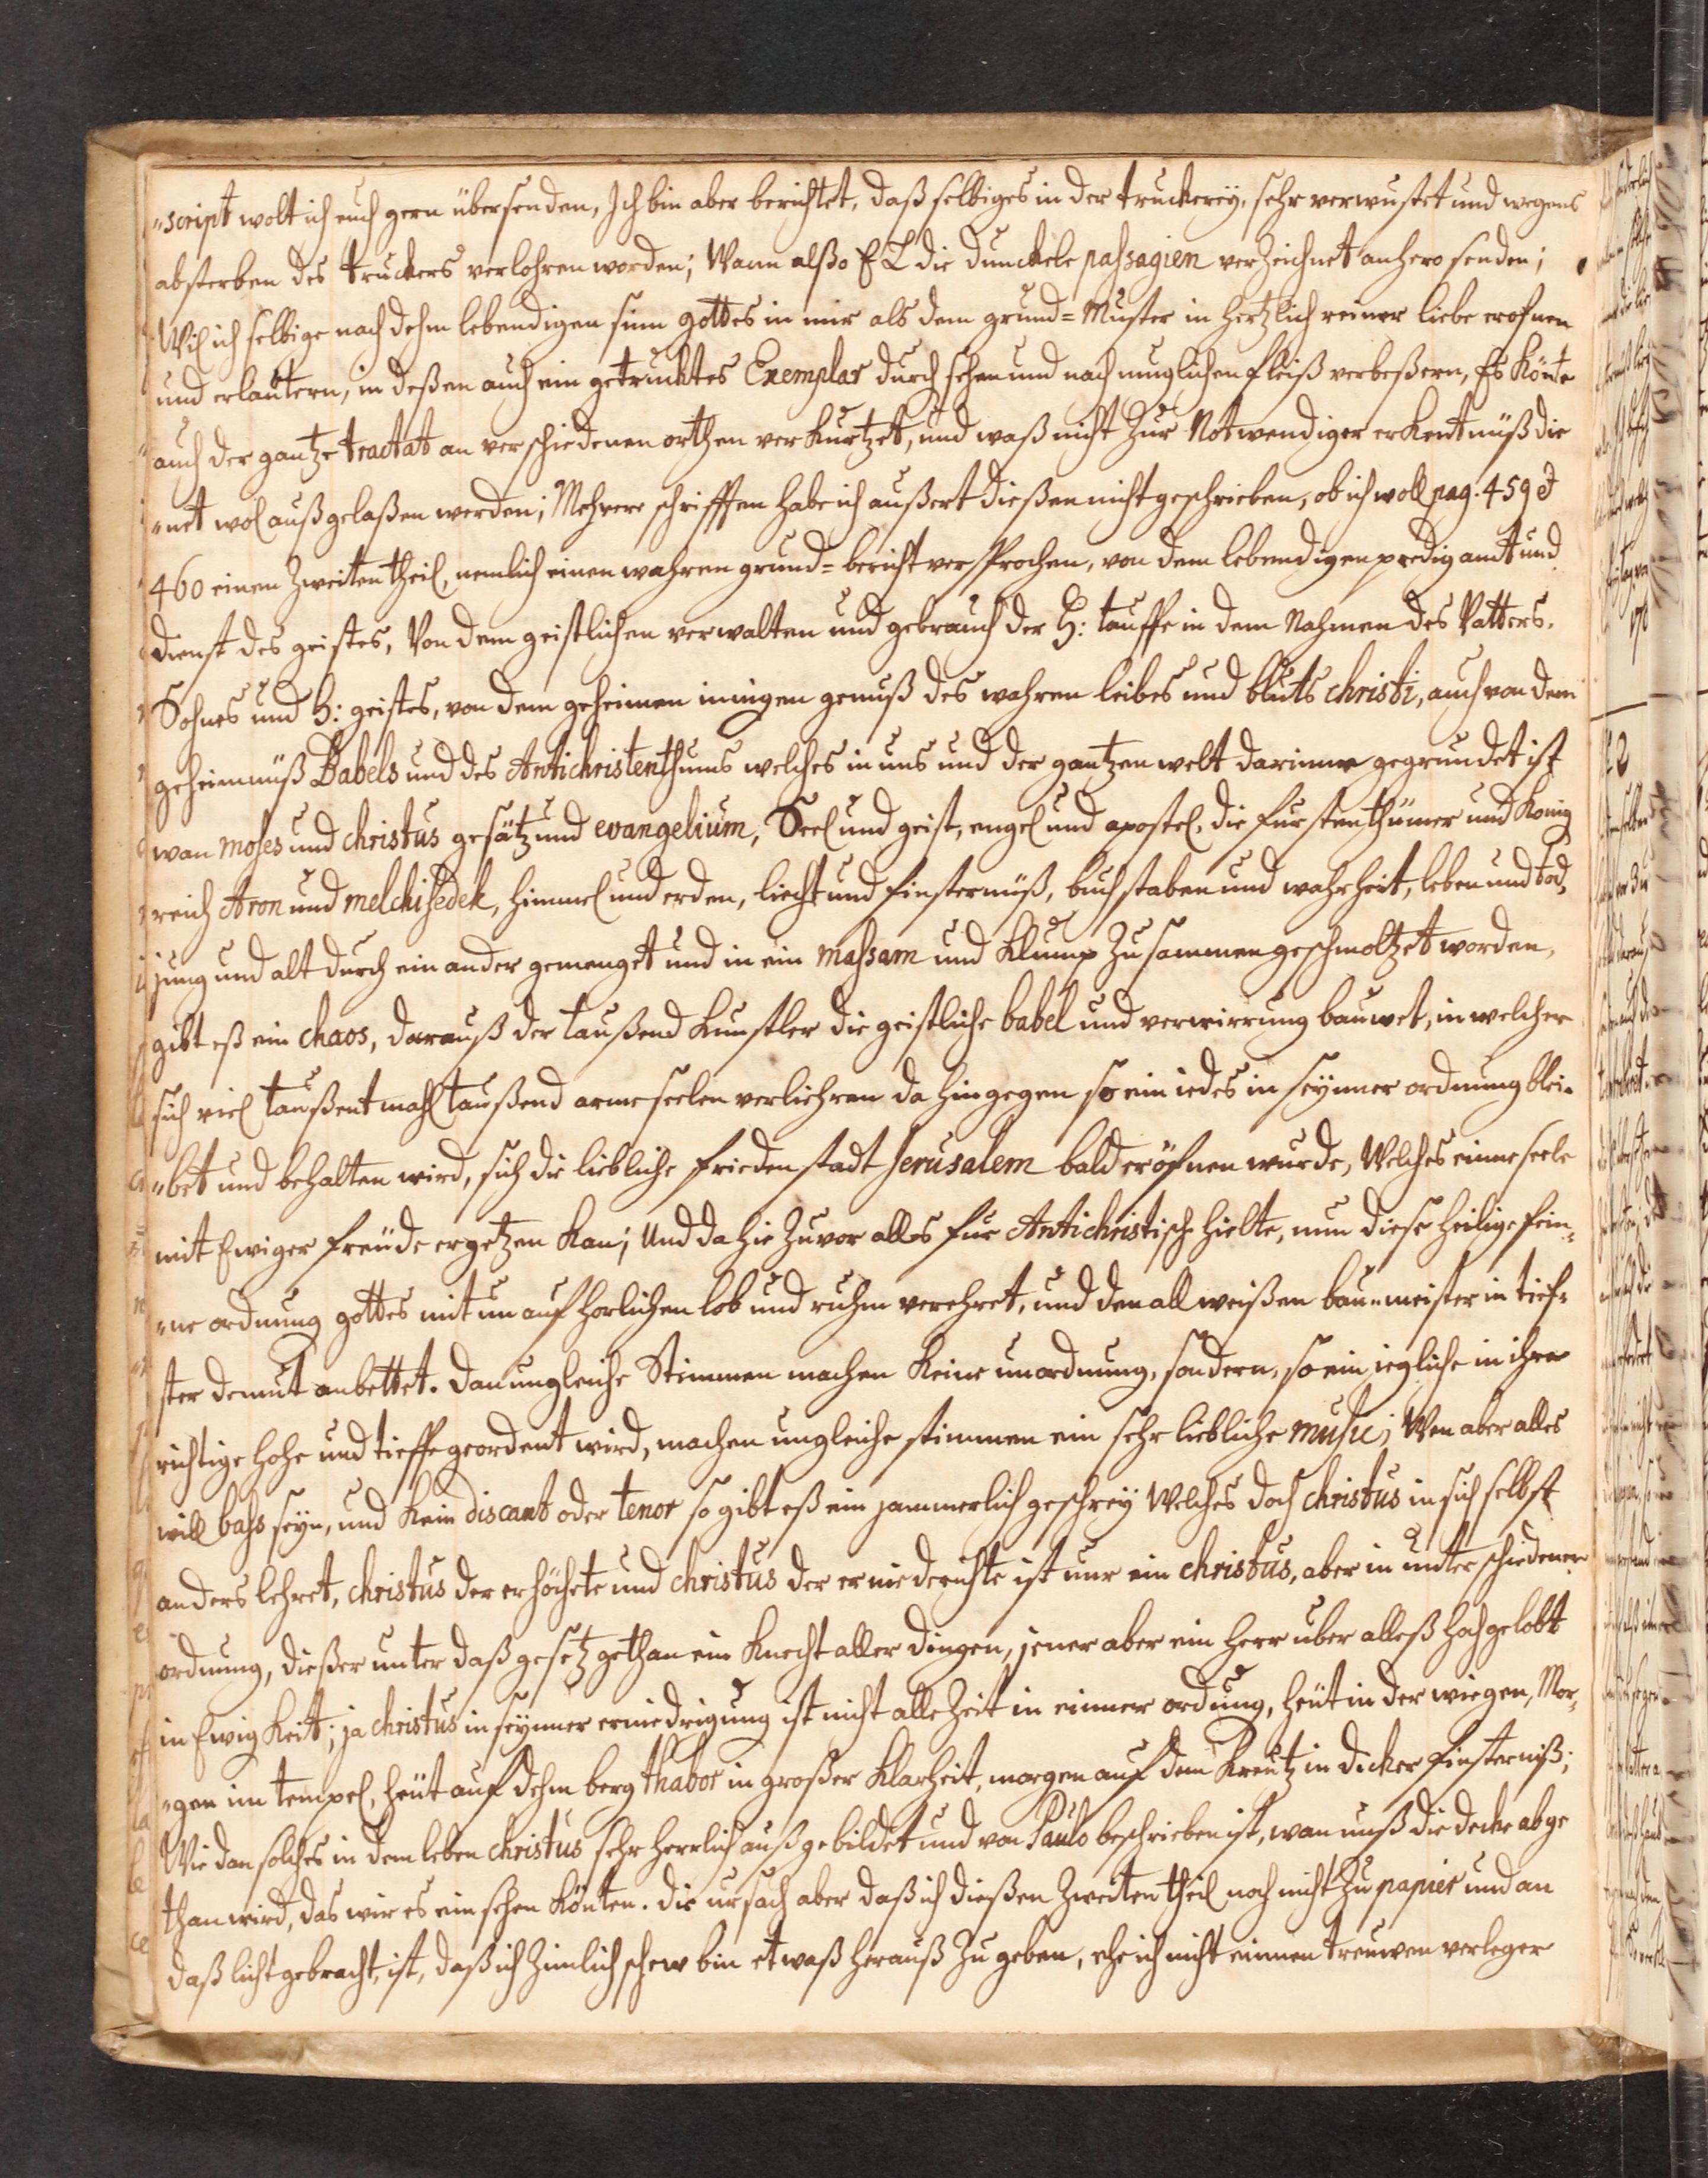 "script wolt ich euch gern übersenden, Ich bin aber berichtet, daß selbiges in der truckereÿ, sehr verwustet und wegens
absterben des truckers verlohren worden; Wann alßo E L die dunckele passagien verzeichnet anhero senden;
Wil ich selbige nach dehm lebendigen sinn gottes in mir als dem grund=Muster in hertzlich reiner liebe erofnen
und erlautern, in deßen auch ein getrucktes Exemplar durch sehen und nach muglichen fleiß verbeßern, Es könte
auch der gantze tractat an verschiedenen orthen verkurtzet, und waß nicht zur Notwendiger erkentnüß die
"net wol außgelaßen werden; Mehrere schrifften habe ich außert dießen nicht geschrieben, ob ich woll pag. 459 et
460 einen zweiten theil, nemlich einen wahren grund=bericht versprochen, von dem lebendigen predig amt und
dienst des geistes, Von dem geistlichen verwalten und gebrauch der H: tauffe in dem Nahmen des Vatters,
Sohnes und H: geistes, von dem geheimen innigen genuß des wahren leibes und bluts christi, auch von dem
geheimnüß Babels und des Antichristenthums welches in uns und der gantzen welt darinne gegrundet ist
wan moses und christus gesätz und evangelium, Seel und geist, engel und apostel, die furstenthümer und König
reich Aron und melchisedek, himmel und erden, liecht und finsternüß, buchstaben und wahrheit, leben und tod,
jung und alt durch ein ander gemenget und in ein massam und Klump zusammen geschmoltzet worden,
gibt eß ein chaos, darauß der taußend kunstler die geistliche babel und verwirrung bauwet, in welcher
sich viel taußent mahl taußend arme seelen verliehren da hingegen so ein iedes in seynner ordnung blei=
"bet und behalten wird, sich die liebliche frieden stadt Jerusalem bald eröfnen wurde, Welches einne seele
mit Ewiger freude ergetzen kan; Und da hie zuvor alles fur Antichristisch hielte, nun diese heilige fein=
"ne ordnung gottes mit un auf horlichen lob und ruhm verehret, und den all weißen bau=meister in tief=
ster demut anbettet. Dan ungleiche Stimmen machen keine unordnung, sondern, so ein iegliche in ihre
richtige hohe und tieffe geordent wird, machen ungleiche stimmen ein sehr liebliche music; Wen aber alles
will bass seyn, und kein discant oder tenor so gibt eß ein jammerlich geschrey Welches doch christus in sich selbst
anders lehret, christus der erhöchete und christus der erniederichte ist nur ein christus, aber in unterschiedener
ordnung, dießer unter daß gesetz gethan ein Knecht aller dingen, jener aber ein herr uber alleß hochgelobt
in Ewig keit; ja christus in seynner erniedrigung ist nicht alle zeit in einner ordung, heüt in der wiegen, Mor=
"gen im tempel, heüt auf dehm berg thabor in großer klarheit, morgen auf dem Kreutz in dicker finsterniß;
Wie dan solches in dem leben christus sehr herrlich auß gebildet und von Paulo beschrieben ist, wan unß die decke abge
than wird, das wir es ein sehen könten. die ursach aber daß ich dießen zweiten theil noch nicht zu papier und an
daß licht gebracht, ist, daß ich zimlich schew bin etwaß herauß zu geben, ehe ich nicht einnen treuwen verleger